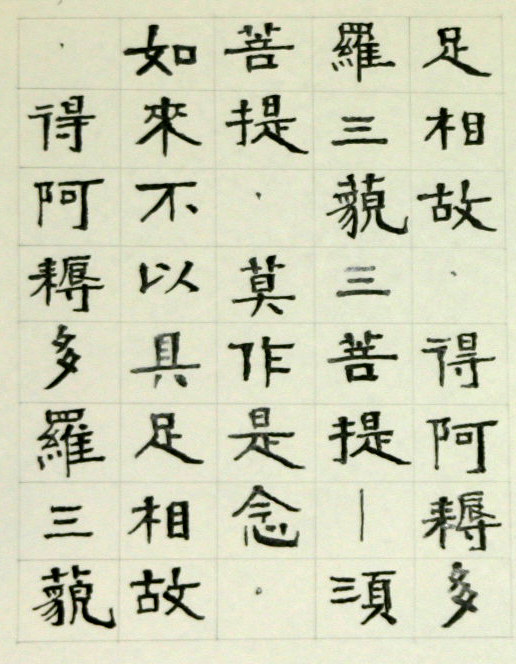 足相故．得阿耨多
羅三藐三菩提｜須
菩提．莫作是念．
如來不以具足相故
．得阿耨多羅三藐